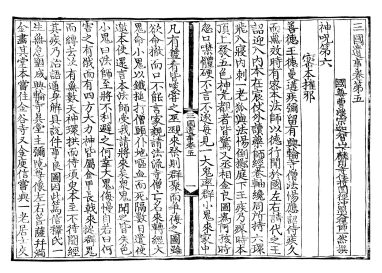 三國遺事卷第五
國尊曹溪宗迦智山下麟角寺住持圓鏡冲照大禪師一然撰
神呪第六
密本摧邪
善德王德曼遘疾弥留有興輪寺僧法惕應詔侍疾久
而無効時有密本法師以德行聞於國左右請代之王
詔迎入内本在宸仗外讀藥師經卷軸纔周所持六環
飛入寢内刺一老狐與法惕倒擲庭下王疾乃瘳時本
頂上發五色神光覩者皆驚又承相金良圖爲阿孩時
忽口噤體硬不言不遂每見一大鬼率群小鬼來家中
凡有盤肴皆啖嘗之巫覡來祭則群聚而爭侮之圖雖
欲命撤而口不能言家親請法流寺僧亡名來轉經大
鬼命小鬼以鐵槌打僧頭仆地嘔血而死隔數日遣使
邀本使還言本法師受我請將來矣衆鬼聞之皆失色
小鬼曰法師至將不利避之何幸大鬼侮慢自若曰何
害之有俄而有四方大力神皆屬金甲長戟來捉群鬼
而縛去次有無數天神環拱而待湏臾本至不待開經
其疾乃治語通身解具說件事良圖因此篤信釋氏一
生無怠塑成興輪寺吳堂主彌陁尊像左右菩薩並滿
金畫其堂本嘗住金谷寺又金庾信嘗與一老居士